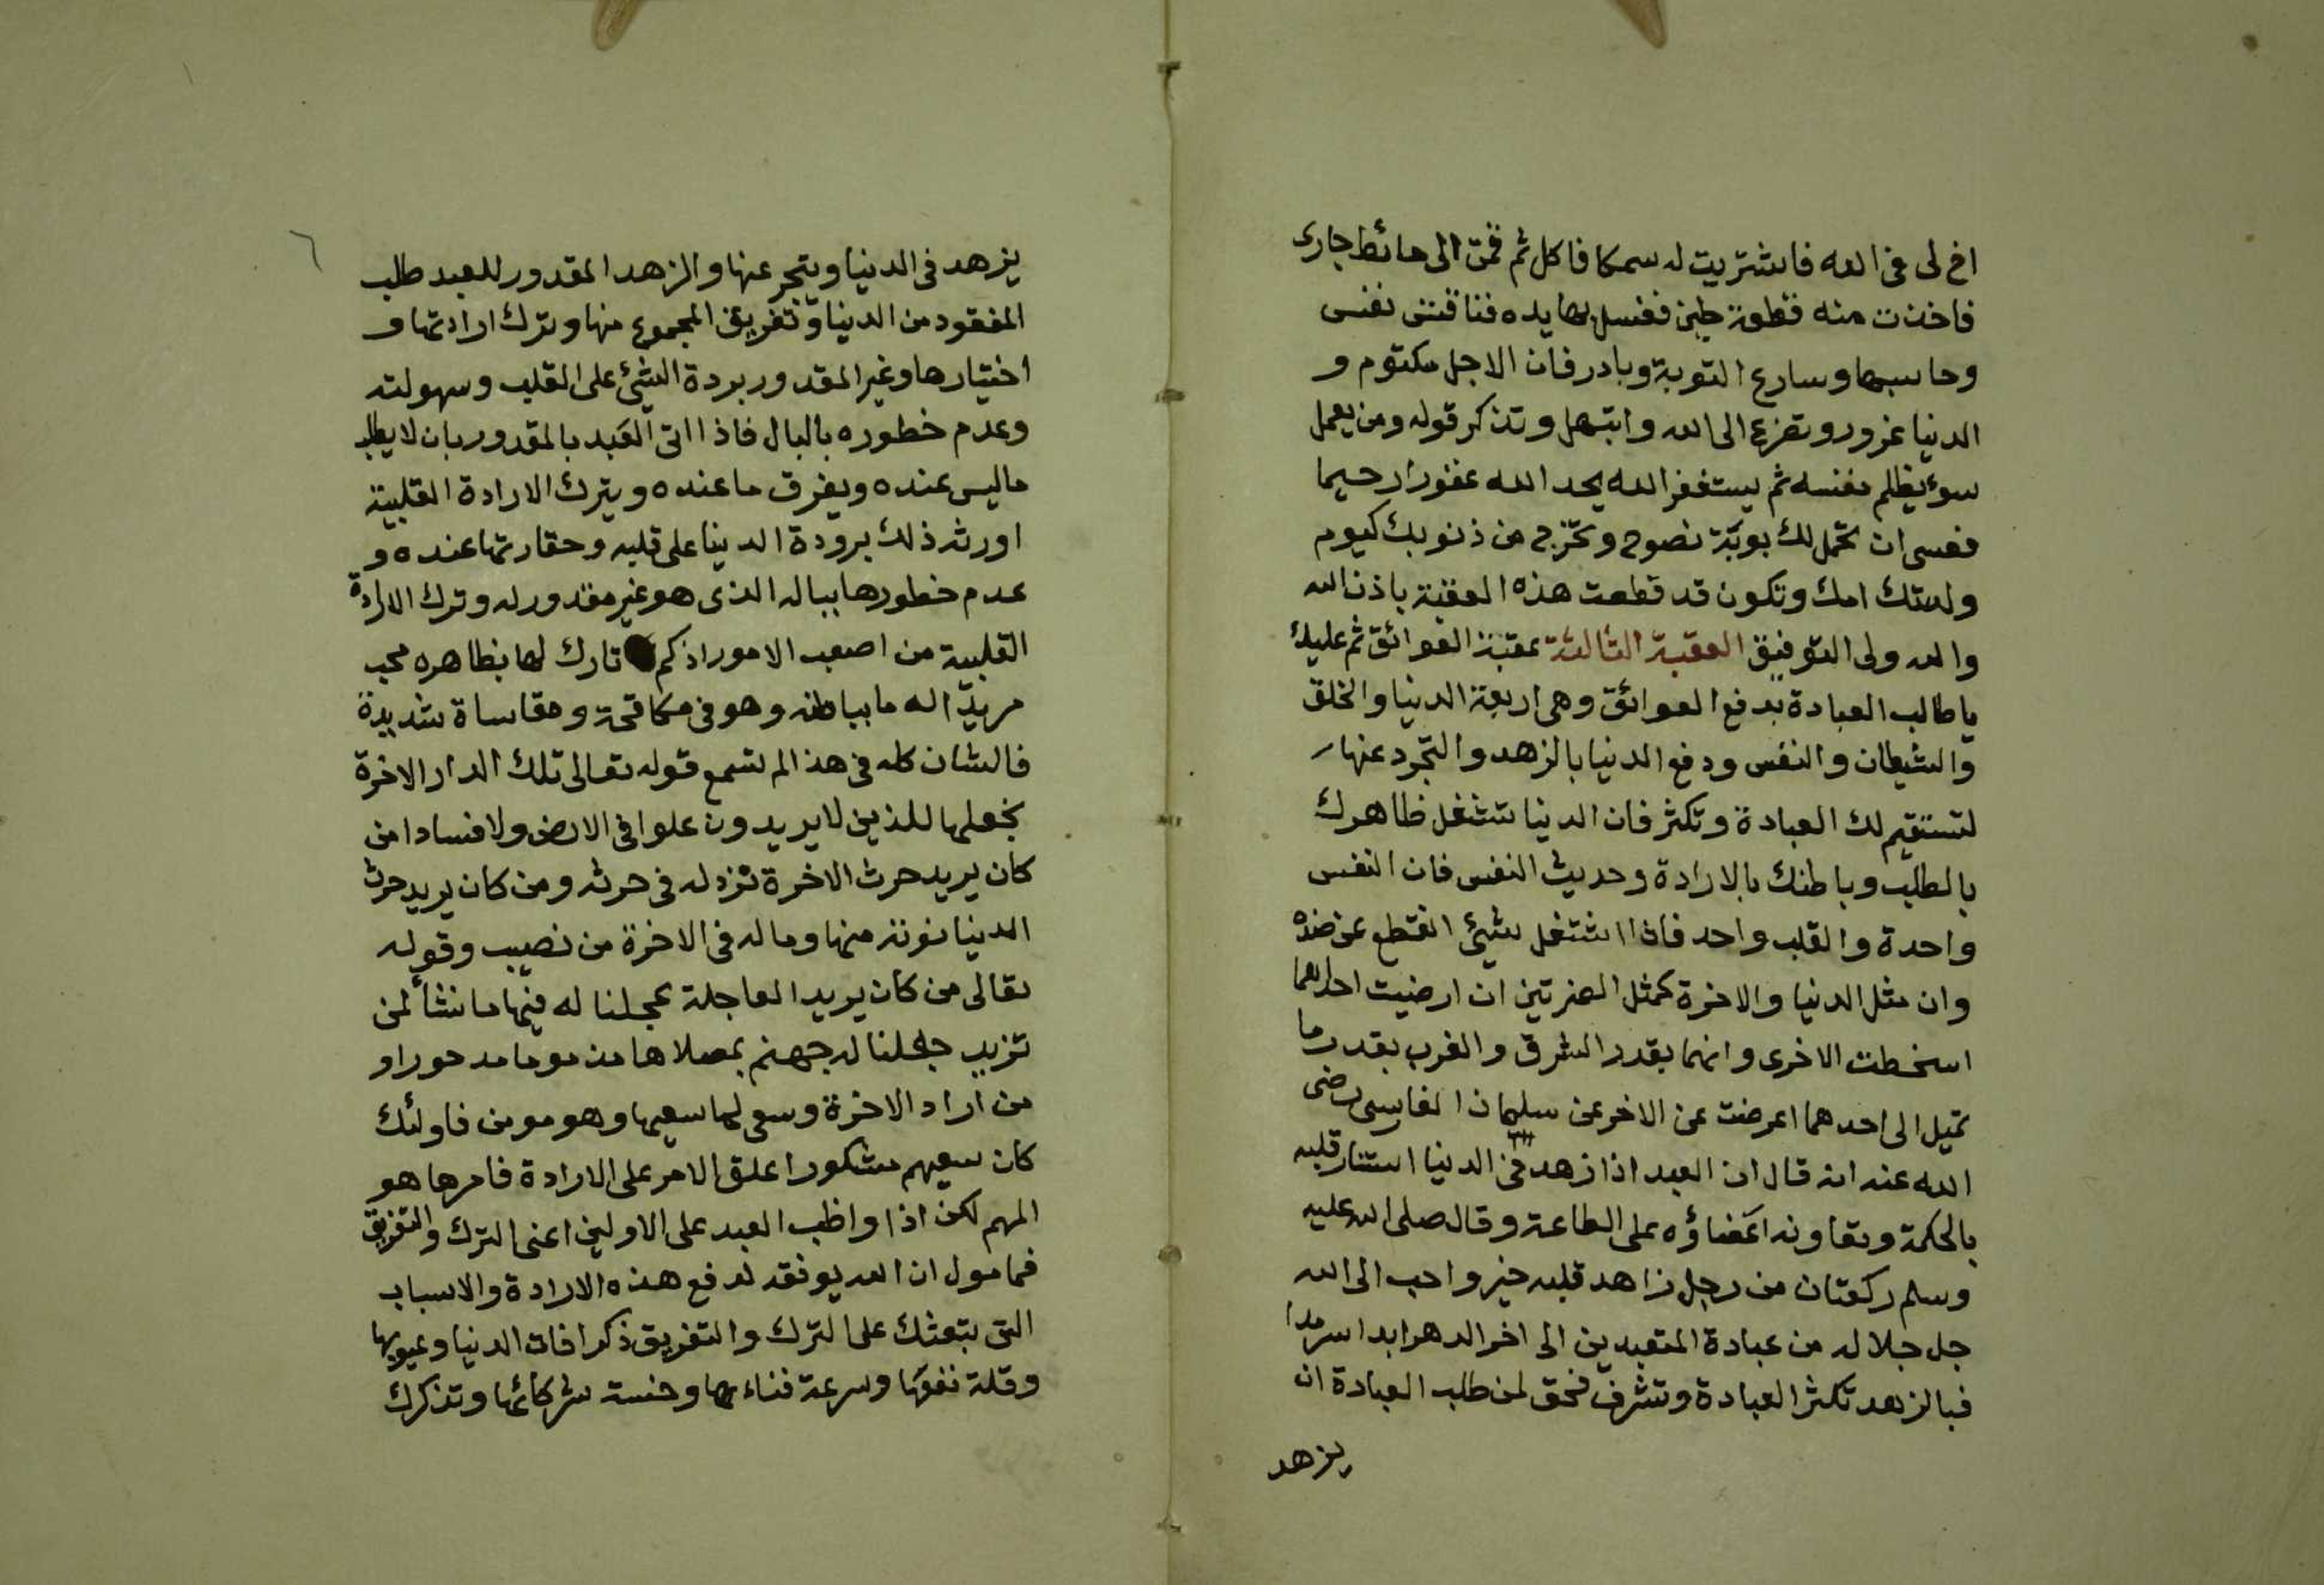 اخ لى فى الله فاشتريت له سمكا فاكل ثم قمت الى حائط جارى
فاخذت منه قطعة طين فغسل بها يده فناقشنى نفسى
وحاسبها وسارع التوبة وبادر فان الاجل مكتوم و
الدنيا غرور وتضرع الى الله وابتهل وتذكر قوله ومن يعمل
سوء يظلم نفسه ثم يستغفر الله يجد الله غفورا رحيما
فعسى ان تحمل لك بوبَة نصوح وتخرج من ذنوبك كيوم
ولدتك امك وتكون قد قطعت هذه العقبة باذن الله
والله ولى التوفيق العقبة الثالثة عقبة العوائق ثم عليك
يا طالب العبادة بدفع العوائق وهى اربعة الدنيا والخلق
والشيطان والنفس ودفع الدنيا بالزهد والتجرد عنها
لتستقيم لك العبادة وتكثر فان الدنيا تشغل ظاهرك
بالطلب وباطنك بالارادة وحديث النفس فان النفس
واحدة والقلب واحد فاذا اشتغل بشئ انقطع عن ضده
وان مثل الدنيا والاخرة كمثل الضرتين ان ارضيت احداهما
اسخطت الاخرى وانهما بقدر الشرق والغرب بقدر ما
تميل الى احدهما اعرضت عن الاخر عن سليمان الفارسى رضى
الله عنه انه قال ان العبد اذا زهد فى الدنيا استنار قلبه
بالحكمة وتعاونه اعضاؤه على الطاعة وقال صلى الله عليه
وسلم ركعتان من رجل زاهد قلبه خير واحب الى الله
جل جلاله من عبادة المتعبدين الى اخر الدهر ابدا سرمدا
فبالزهد تكثر العبادة وتشرف فحق لمن طلب العبادة ان
يزهد
٦
يزهد فى الدنيا ويتجر عنها والزهد المقدور للعبد طلب
المفقود من الدنيا وتفريق المجموع منها وترك ارادتها و
اختيارها وغير المقدور بردة الشئ على القلب وسهولته
وعدم خطوره بالبال فاذا اتى العبد بالمقدور بان لا يطلب
ما ليس عنده ويفرق ما عنده ويترك الارادة القلبية
اورث ذلك برودة الدنيا على قلبه وحقارتها عنده و
عدم خطورها بباله الذى هو غير مقدور له وترك الارادة
القلبية من اصعب الامور اذ كم تارك لها بظاهره محب
مريد اله ما بباطنه وهو فى مكافحة ومقاساة شديدة
فالشان كله فى هذ الم تسمع قوله تعالى تلك الدار الاخرة
نجعلها للذين لا يريدون علوا فى الارض ولا فسادا من
كان يريد حرث الاخرة نزد له فى حرثه ومن كان يريد حرث
الدنيا نوته منها وما له فى الاخرة من نصيب وقوله
تعالى من كان يريد العاجلة عجلنا له فيها ما نشأ لمن
تزيد جلعلنا له جهنم بصلاها مذموما مدحورا و
من اراد الاخرة وسعى لها سعيها وهو مومن فاولئك
كان سعيهم مشكورا علق الامر على الارادة فامرها هو
المهم لكن اذا واظب العبد على الاولين اعنى الترك والتفريق
فمامول ان الله يوفقه لدفع هذه الارادة والاسباب
التى بتعثك على الترك والتفريق ذكر افات الدنيا وعيوبها
وقلة نفعها وسرعة فناءها وخسة شركائها وتذكرك